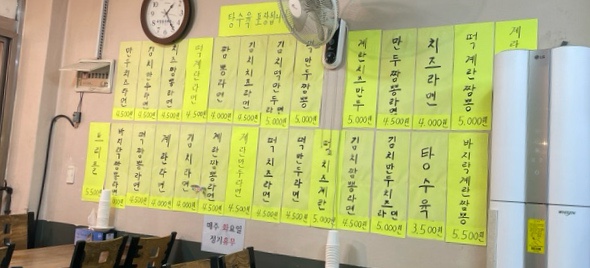 탕수육 포장됩니다
만두치즈라면 4.500원
김치만두라면 4.500원
치즈짬뽕라면 4.500원
떡계란라면 4.500원
짬뽕라면 4.000원
김치치즈라면 4.500원
김치떡만두라면 5.000원
만두짬뽕 5.000원
계란치즈만두 5.000원
만두짬뽕라면 4.500원
치즈라면 4.000원
떡계란짬뽕 5.000원
계란
5.500원
바지락짬뽕라면
떡짬뽕라면 4.500원
계란라면
김치라면
계란짬뽕라면 4.500원
계란만두라면 4.500원
떡치즈라면 4.500원
떡만두라면 4.500원
떡치즈계란 5.000원
김치짬뽕라면 4.500원
김치만두치즈라면 5.000원
탕수육 3.500원
바지락계란짬뽕 5.500원
매주 화요일
정기휴무
LG